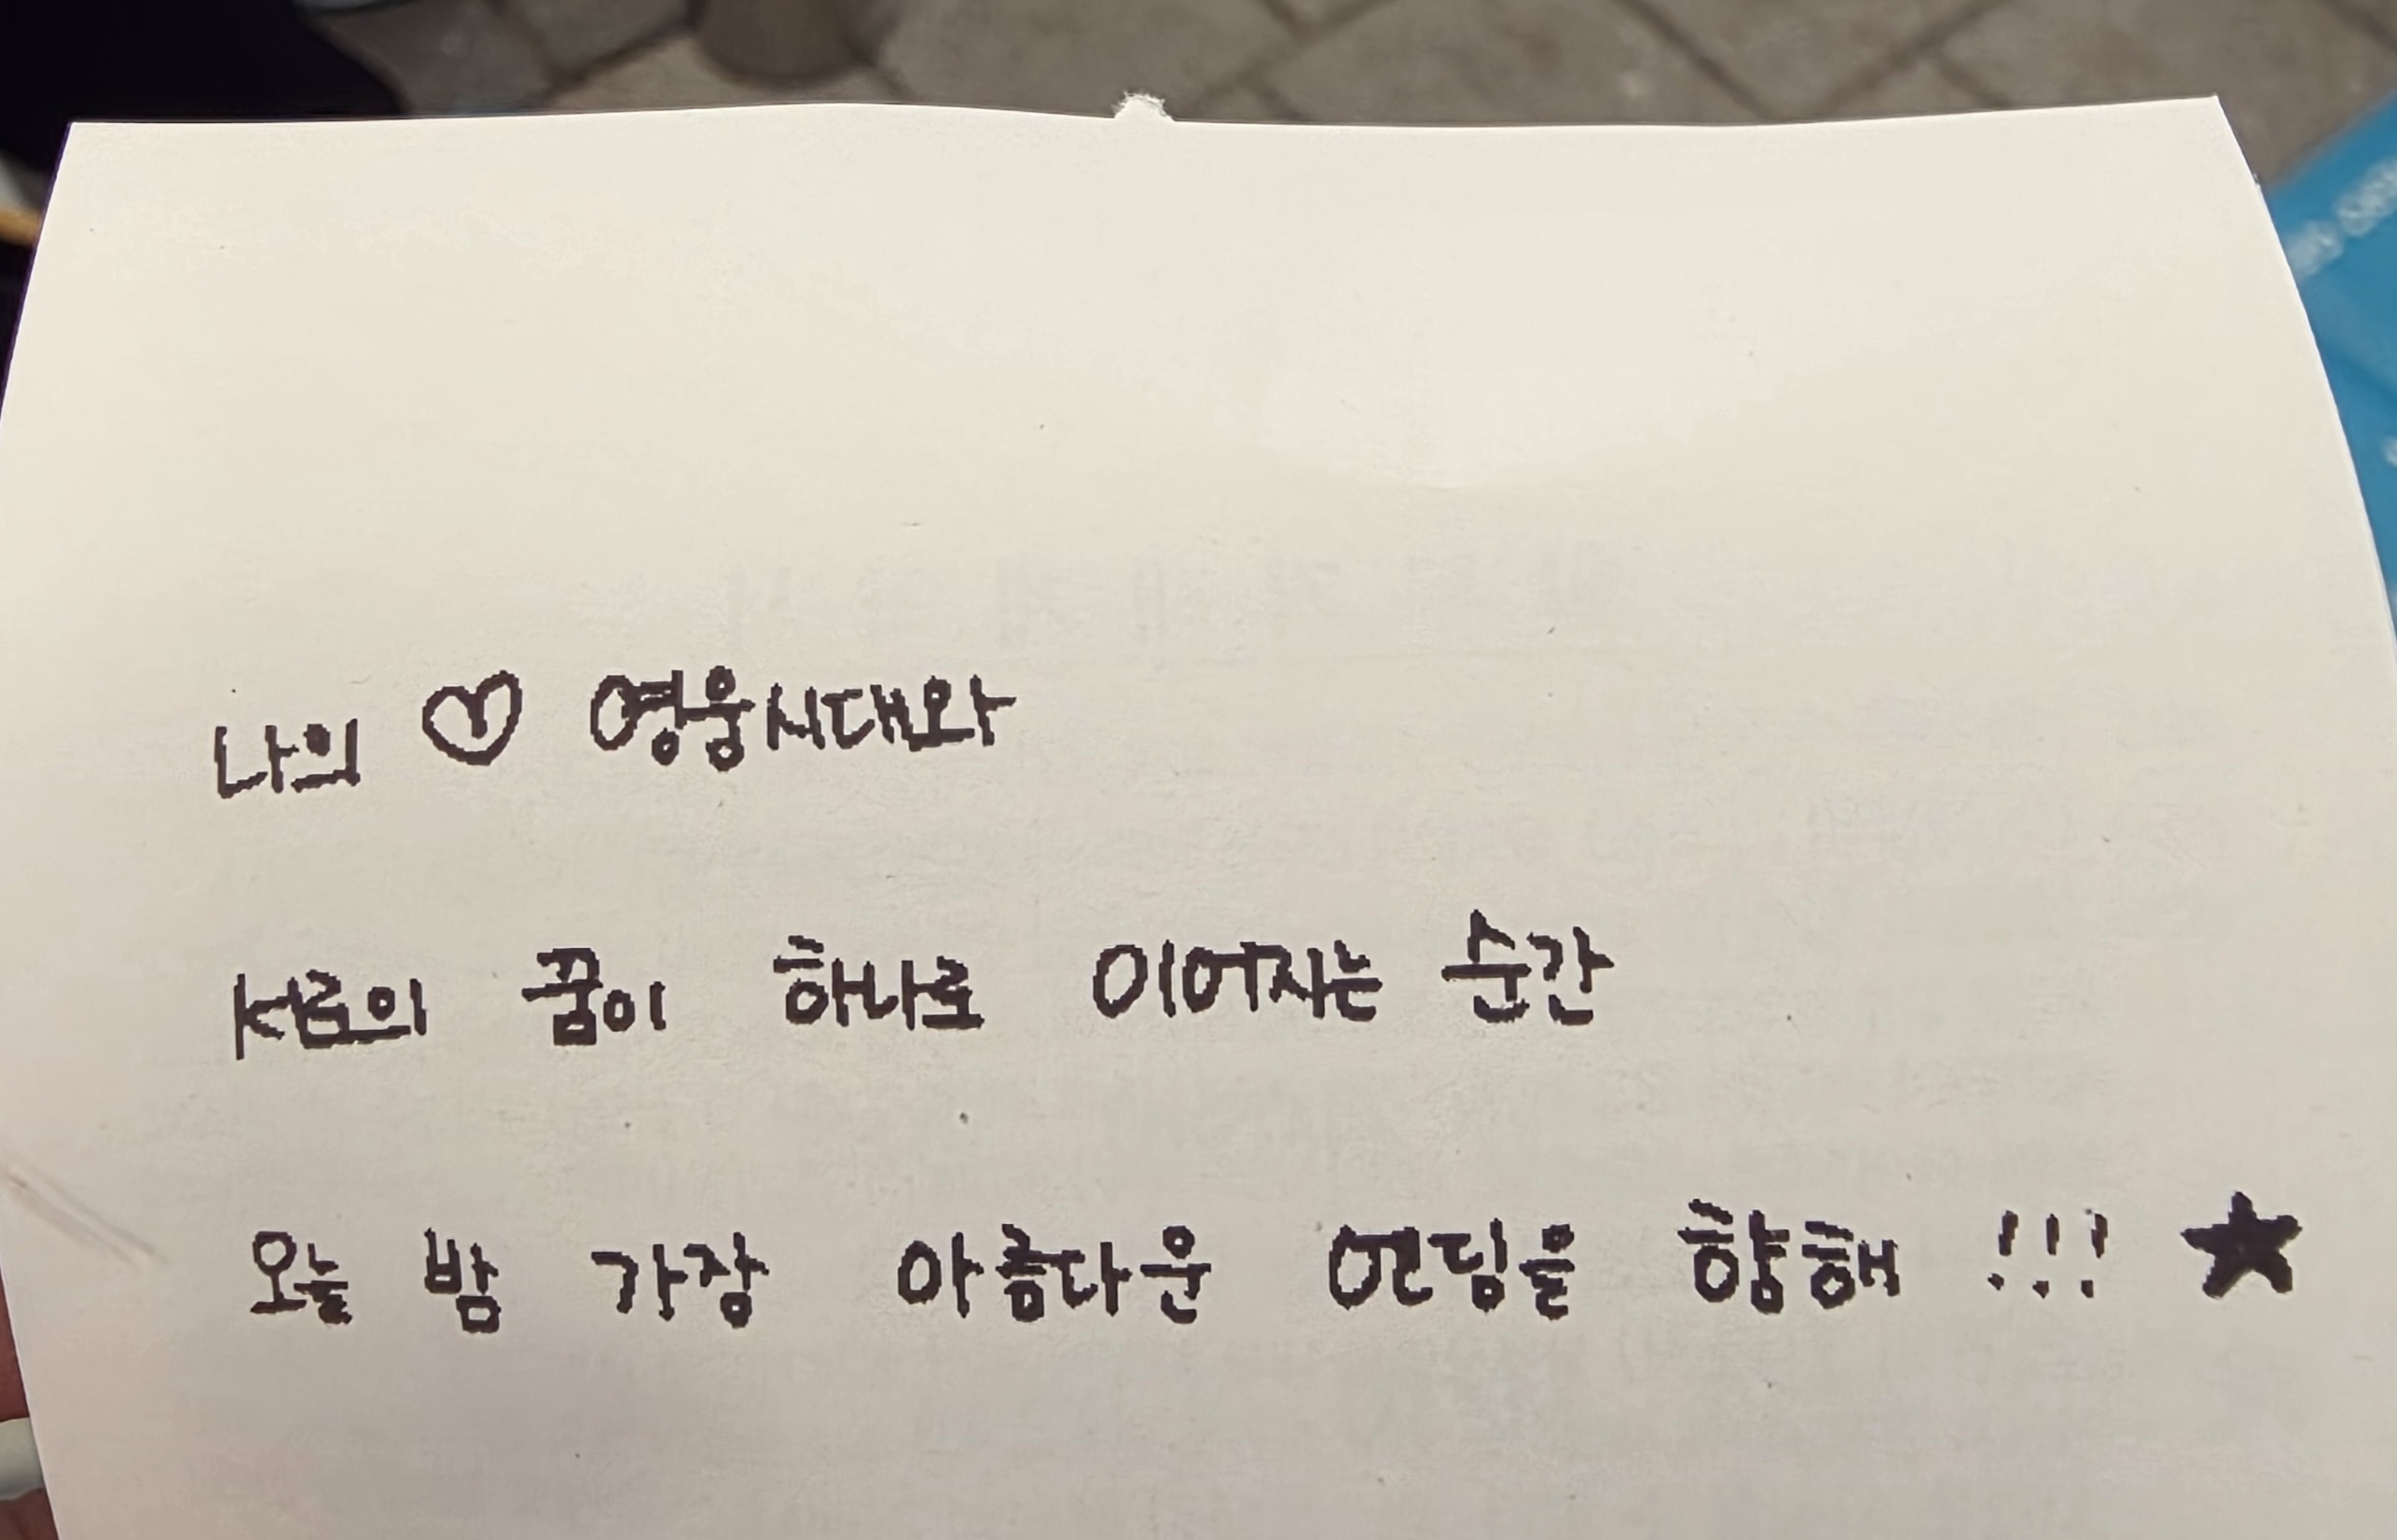 나의 ♡ 영웅시대와
서로의 꿈이 하나로 이어지는 순간
오늘 밤 가장 아름다운 엔딩을 향해 !!! ★